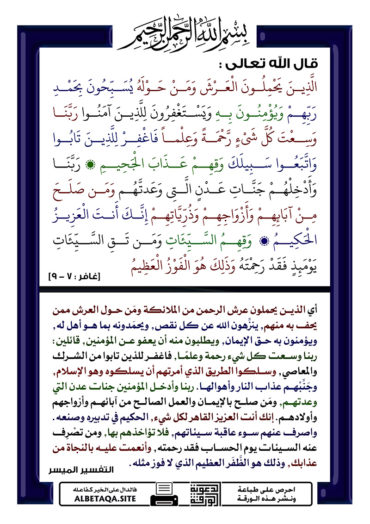 بِسْمِ اللَّهِ الرَّحْمَٰنِ الرَّحِيمِ
قال الله تعالى :
الَّذِينَ يَحْمِلُونَ الْعَرْشَ وَمَنْ حَوْلَهُ يُسَبِّحُونَ بِحَمْدِ
رَبِّهِمْ وَيُؤْمِنُونَ بِهِ وَيَسْتَغْفِرُونَ لِلَّذِينَ آمَنُوا رَبَّنَا
وَسِعْتَ كُلَّ شَيْءٍ رَّحْمَةً وَعِلْماً فَاغْفِرْ لِلَّذِينَ تَابُوا
وَاتَّبَعُوا سَبِيلَكَ وَقِهِمْ عَذَابَ الْجَحِيمِ ۞ رَبَّنَا
وَأَدْخِلْهُمْ جَنَّاتِ عَدْنٍ الَّتِي وَعَدتَّهُمْ وَمَن صَلَحَ
مِنْ آبَائِهِمْ وَأَزْوَاجِهِمْ وَذُرِّيَّاتِهِمْ إِنَّكَ أَنتَ الْعَزِيزُ
الْحَكِيمُ ۞ وَقِهِمُ السَّيِّئَاتِ وَمَن تَقِ السَّيِّئَاتِ
يَوْمَئِذٍ فَقَدْ رَحِمْتَهُ وَذَلِكَ هُوَ الْفَوْزُ الْعَظِيمُ
[غافر : ٧ - ٩]
أي الذين يحملون عرش الرحمن من الملائكة ومَن حول العرش ممن
يحف به منهم, ينزِّهون الله عن كل نقص, ويحمَدونه بما هو أهل له,
ويؤمنون به حق الإيمان, ويطلبون منه أن يعفو عن المؤمنين, قائلين:
ربنا وسعت كل شيء رحمة وعلمًا, فاغفر للذين تابوا من الشرك
والمعاصي, وسلكوا الطريق الذي أمرتهم أن يسلكوه وهو الإسلام,
وجنِّبْهم عذاب النار وأهوالها. ربنا وأدخل المؤمنين جنات عدن التي
وعدتهم, ومَن صلح بالإيمان والعمل الصالح من آبائهم وأزواجهم
وأولادهم. إنك أنت العزيز القاهر لكل شيء, الحكيم في تدبيره وصنعه.
واصرف عنهم سوء عاقبة سيئاتهم, فلا تؤاخذهم بها, ومن تصْرِف
عنه السيئات يوم الحساب فقد رحمته, وأنعمت عليه بالنجاة من
عذابك, وذلك هو الظَّفَر العظيم الذي لا فوز مثله.
التفسير الميسر
احرص على طباعة
ونشر هذه الورقة
الدعوية
الورقة
فالدال على الخير كفاعله
ALBETAQA.SITE